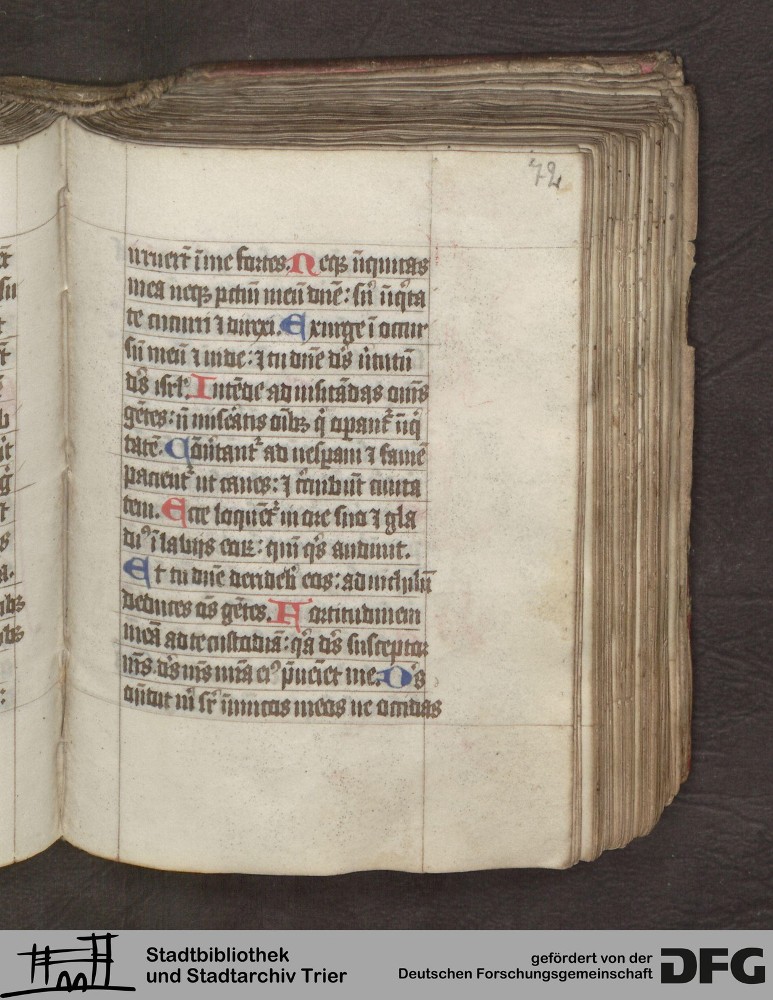 72
uruert̄ ī me fortes. Neqȝ īiquitas
mea neqȝ pctm̄ meū dnē: sn̄ īiqͥta
te cucurri ⁊ direxi. Exurge ī occur
sū meū ⁊ uide: ⁊ tu dnē ds̄ ūtutū
ds̄ isrl̄. Intēde ad uisitādas om̄s
gētes: nō misēaris oībȝ qͥ opant᷑ īiqͥ
tatē. Cōūtant᷑ ad uesꝑam ⁊ famē
pacient᷑ ut canes: ⁊ cͥcuibūt ciuita
tem. Ecce loquēt᷑ in ore suo ⁊ gla
diꝰ ī labijs eoꝝ: qm̄ qͥs audiuit.
Et tu dnē deridebͥ eos: ad nichilū
deduces oēs gētes. Fortitudinem
meā ad te custodiā: qͣ ds̄ susceptor
ms̄ ds̄ ms̄ mīa eiꝰ p̄ueīet me. Ds̄
oñdit m̄ sr̄ inimicos meos ne occidas
Stadtbibliothek
und Stadtarchiv Trier
gefördert von der
Deutschen Forschungsgemeinschaft
DFG